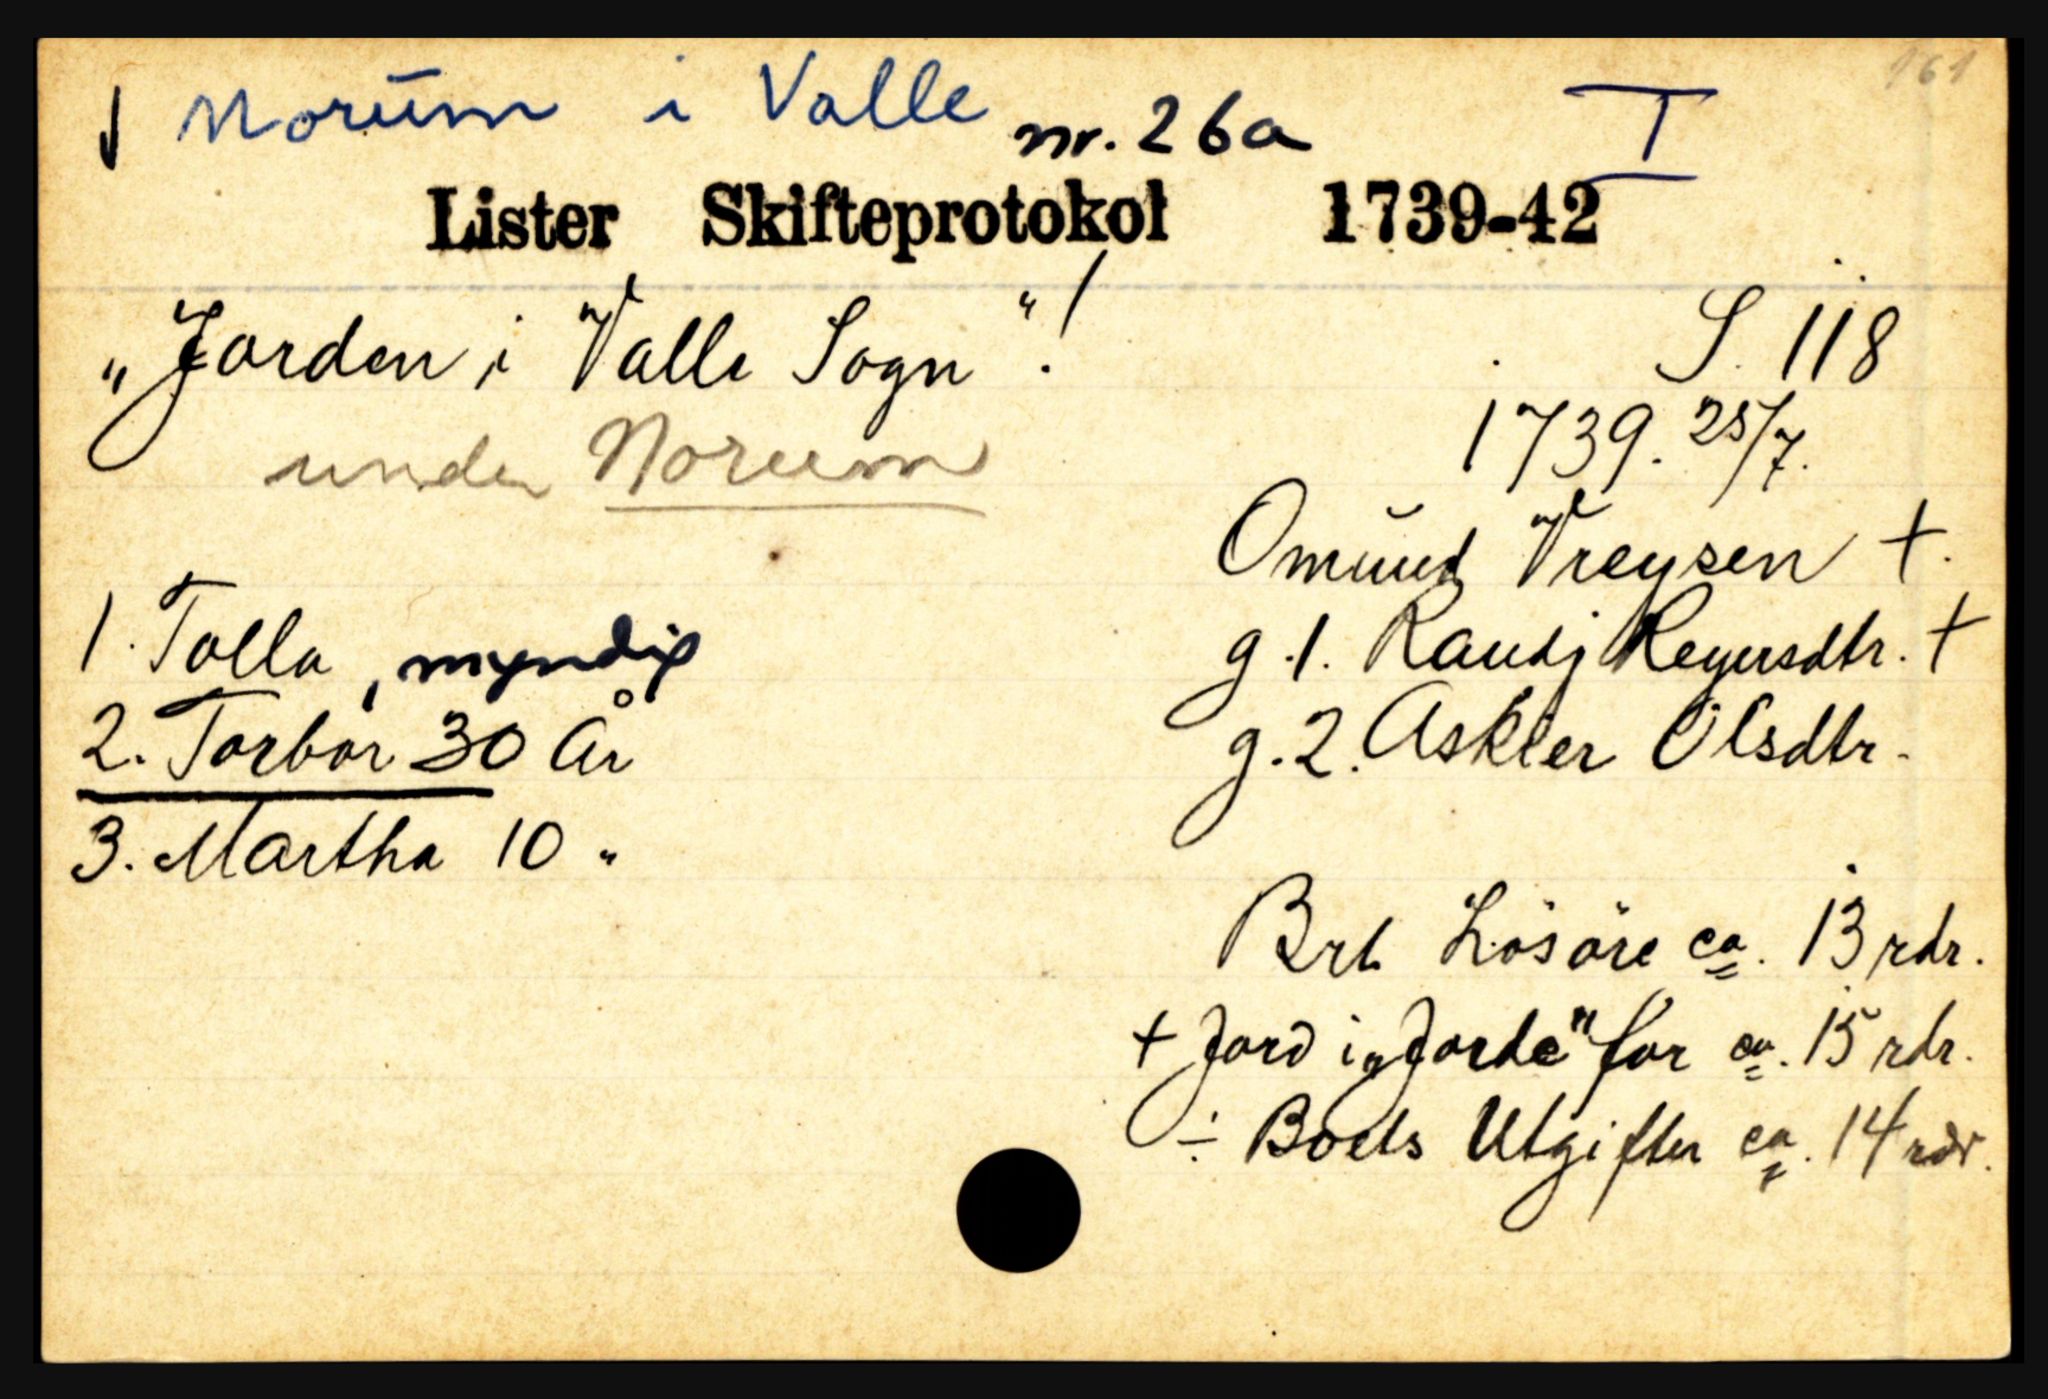 161
Norum i Valle nr. 26a I
Lister Skifteprotokol 1739-42
"Jorden i Valle Sogn"!
S. 118
under Norum
1739. 25/7.
Omund Vreysen +.
1. Tolla, myndig
g. 1. Randj Reyersdtr. +
2. Torbor 30 År
g. 2. Askier Olsdtr.
3. Martha 10 "
Brt. Lösöre ca. 13 rdr.
+ Jord i "Jorde" for ca. 15 rdr.
÷ Boets Utgifter ca. 14 rdr.